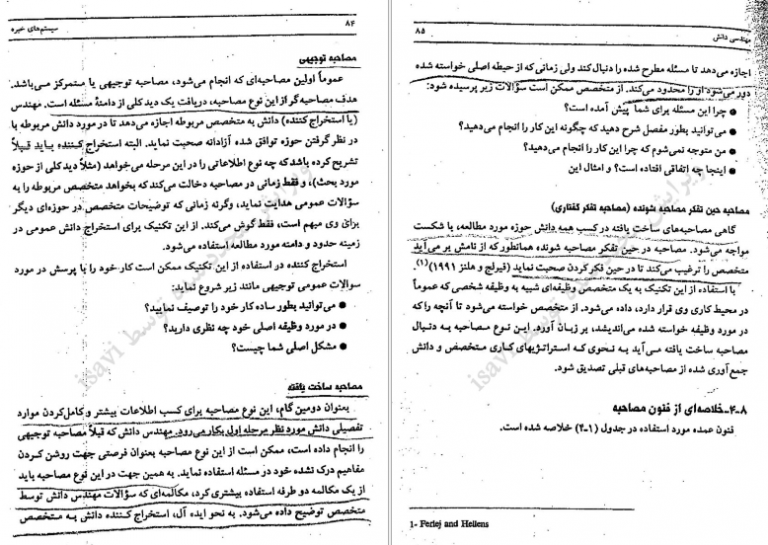 سیستم‌های خبره
۸۴
مصاحبه توجیهی
عموماً اولین مصاحبه‌ای که انجام می‌شود، مصاحبه توجیهی یا ستمرکز می‌باشد.
هدف مصاحبه‌گر از این نوع مصاحبه، دریافت یک دید کلی از دامنهٔ مسئله است. مهندس
(یا استخراج کننده) دانش به متخصص مربوطه اجازه می‌دهد تا در مورد دانش مربوطه با
در نظر گرفتن حوزه توافق شده آزادانه صحبت نماید. البته استخراج کننده باید قبلاً
تشریح کرده باشد که چه نوع اطلاعاتی را در این مرحله می‌خواهد (مثلاً دید کلی از حوزه
مورد بحث)، و فقط زمانی در مصاحبه دخالت می‌کند که بخواهد متخصص مربوطه را به
سؤالات عمومی هدایت نماید، وگرنه زمانی که توضیحات متخصص در حوزه‌ای دیگر
برای وی مبهم است، فقط گوش می‌کند. از این تکنیک برای استخراج دانش عمومی در
زمینه حدود و دامنه مورد مطالعه استفاده می‌شود.
استخراج کننده در استفاده از این تکنیک ممکن است کار خود را با پرسش در مورد
وظیفه‌ای عمومی توجیهی مانند زیر شروع نماید:
● می‌توانید بطور ساده کار خود را توصیف نمایید؟
● در مورد وظیفه اصلی خود چه نظری دارید؟
● مشکل اصلی شما چیست؟
مصاحبه ساخت یافته
بعنوان دومین گام، این نوع مصاحبه برای کسب اطلاعات بیشتر و کامل‌کردن موارد
تفصیلی دانش مورد نظر مرحله اول بکار می‌رود. مهندس دانش که قبلاً مصاحبه توجیهی
را انجام داده است، ممکن است از این نوع مصاحبه بعنوان فرصتی جهت روشن کردن
مفاهیم درک نشده خود در مسئله استفاده نماید. به همین جهت در این نوع مصاحبه باید
از یک مکالمه دو طرفه استفاده بیشتری کرد، مکالمه‌ای که سؤالات مهندس دانش توسط
متخصص توضیح داده می‌شود. به نحو ایده آل، استخراج کننده دانش به متخصص
مهندسی دانش
۸۵
اجازه می‌دهد تا مسئله مطرح شده را دنبال کند ولی زمانی که از حیطه اصلی خواسته شده
دور می‌شود او را محدود می‌کند. از متخصص ممکن است سؤالات زیر پرسیده شود:
● چرا این مسئله برای شما پیش آمده است؟
● می‌توانید بطور مفصل شرح دهید که چگونه این کار را انجام می‌دهید؟
● من متوجه نمی‌شوم که چرا این کار را انجام می‌دهید؟
● اینجا چه اتفاقی افتاده است؟ و امثال این
مصاحبه حین تفکر مصاحبه شونده (مصاحبه تفکر گفتاری)
گاهی مصاحبه‌های ساخت یافته در کسب همه دانش حوزه مورد مطالعه، با شکست
مواجه می‌شود. مصاحبه در حین تفکر مصاحبه شونده همانطور که از نامش بر می‌آید
متخصص را ترغیب می‌کند تا در حین فکر کردن صحبت نماید (فیرلج و هلنز ۱۹۹۱)(۱).
با استفاده از این تکنیک به یک متخصص وظیفه‌ای شبیه به وظیفه شخصی که عموماً
در محیط کاری وی قرار دارد، داده می‌شود. از متخصص خواسته می‌شود تا آنچه را که
در مورد وظیفه خواسته شده می‌اندیشد، بر زبان آورد. این نوع مصاحبه به دنبال
مصاحبه ساخت یافته می‌آید به نحوی که استراتژیهای کاری متخصص و دانش
جمع‌آوری شده از مصاحبه‌های قبلی تصدیق شود.
۸-۴-خلاصه‌ای از فنون مصاحبه
فنون عمده مورد استفاده در جدول (۱-۴) خلاصه شده است.
1- Ferlej and Hellens
isavi
توسط
isavi